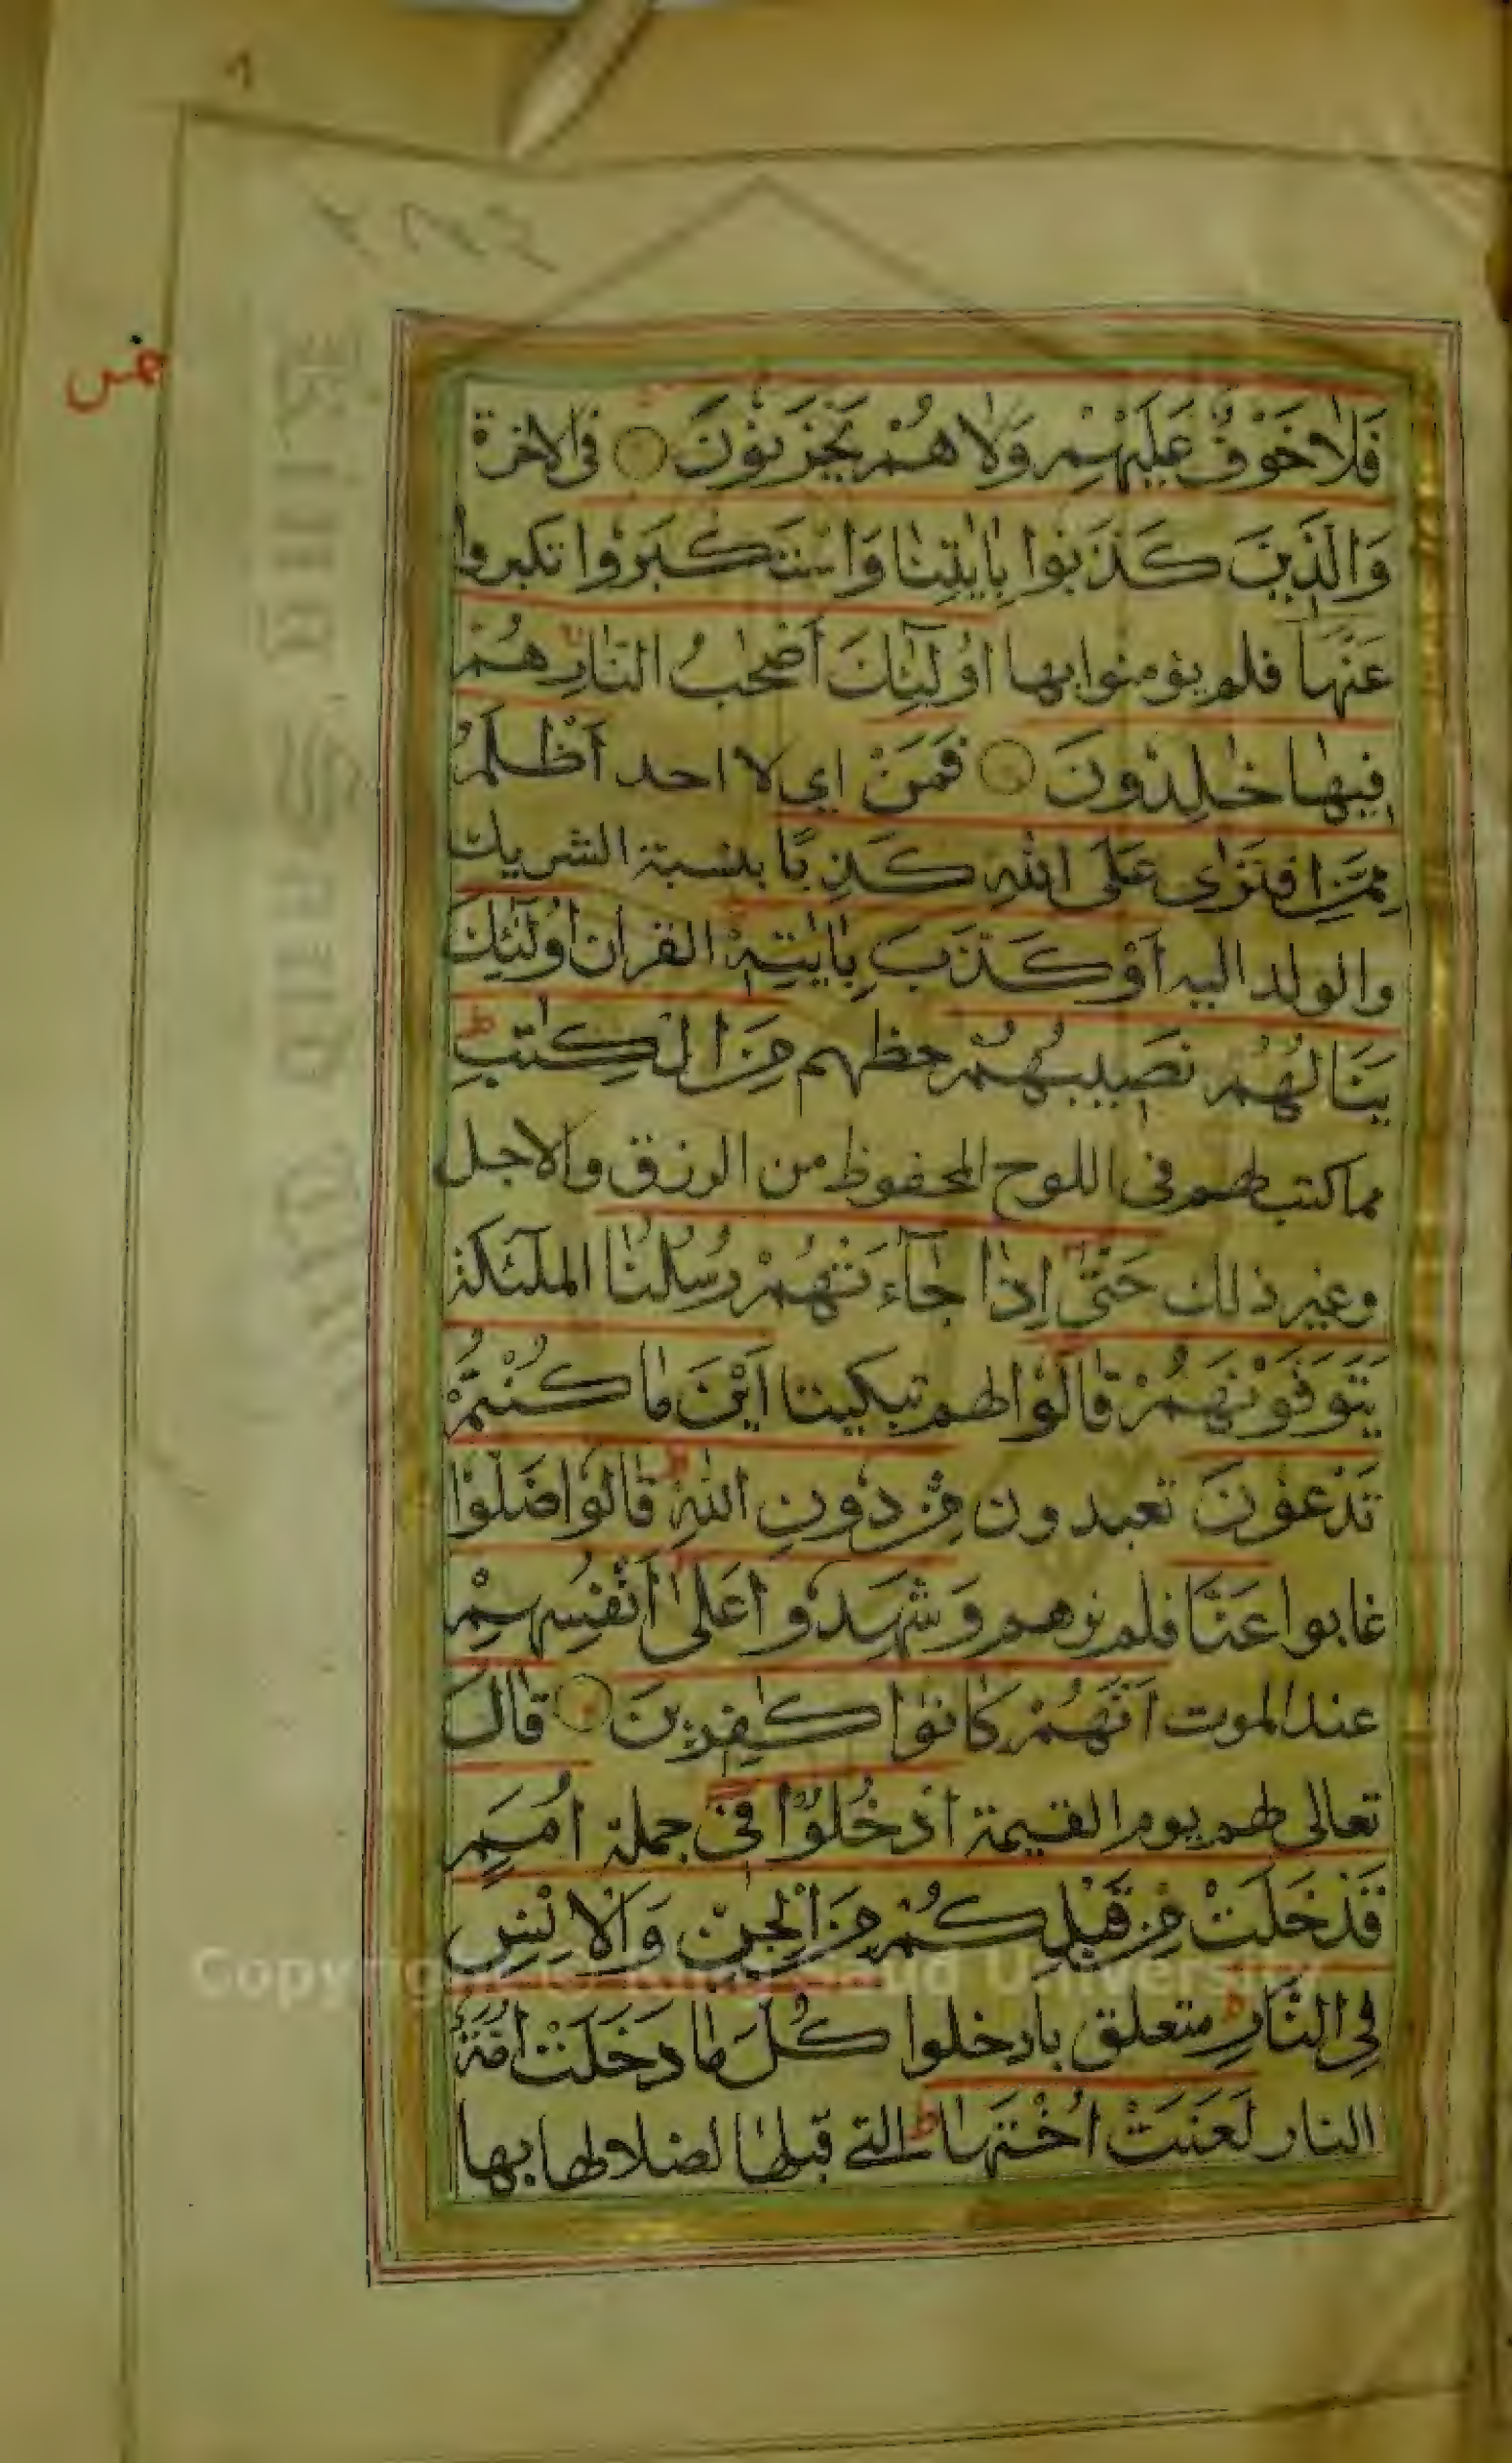 خمس
فَلَا خَوْفٌ عَلَيْهِمْ وَلَا هُمْ يَحْزَنُونَ فى الاخرة
وَالَّذِينَ كَذَّبُوا بِاٰيٰتِنَا وَاسْتَكْبَرُوا تكبروا
عَنْهَا فلم يؤمنوا بها اُولٰٓئِكَ اَصْحٰبُ النَّارِ هُمْ
فِيهَا خٰلِدُونَ فَمَنْ اي لا احد اَظْلَمُ
مِمَّنِ افْتَرٰى عَلَى اللّٰهِ كَذِبًا بنسبة الشريك
والولد اليه اَوْ كَذَّبَ بِاٰيٰتِهٖ القران اُولٰٓئِكَ
يَنَالُهُمْ نَصِيبُهُمْ حظهم مِنَ الْكِتٰبِ ط
مما كتب لهم فى اللوح المحفوظ من الرزق والاجل
وغير ذلك حَتّٰى اِذَا جَآءَتْهُمْ رُسُلُنَا الملٓئكة
يَتَوَفَّوْنَهُمْ قَالُوا لهم تبكيتا اَيْنَ مَا كُنْتُمْ
تَدْعُونَ تعبدون مِنْ دُونِ اللّٰهِ ط قَالُوا ضَلُّوا
غابوا عَنَّا فلم نرهم وَشَهِدُوا عَلٰى اَنْفُسِهِمْ
عند الموت اَنَّهُمْ كَانُوا كٰفِرِينَ قَالَ
تعالى لهم يوم القيمة ادْخُلُوا فِىٓ جملة اُمَمٍ
قَدْ خَلَتْ مِنْ قَبْلِكُمْ مِنَ الْجِنِّ وَالْاِنْسِ
فِى النَّارِ ط متعلق بادخلوا كُلَّمَا دَخَلَتْ اُمَّةٌ
النار لَعَنَتْ اُخْتَهَا ط التى قبلها لضلالها بها
King Saud University
Copyright © King Saud University